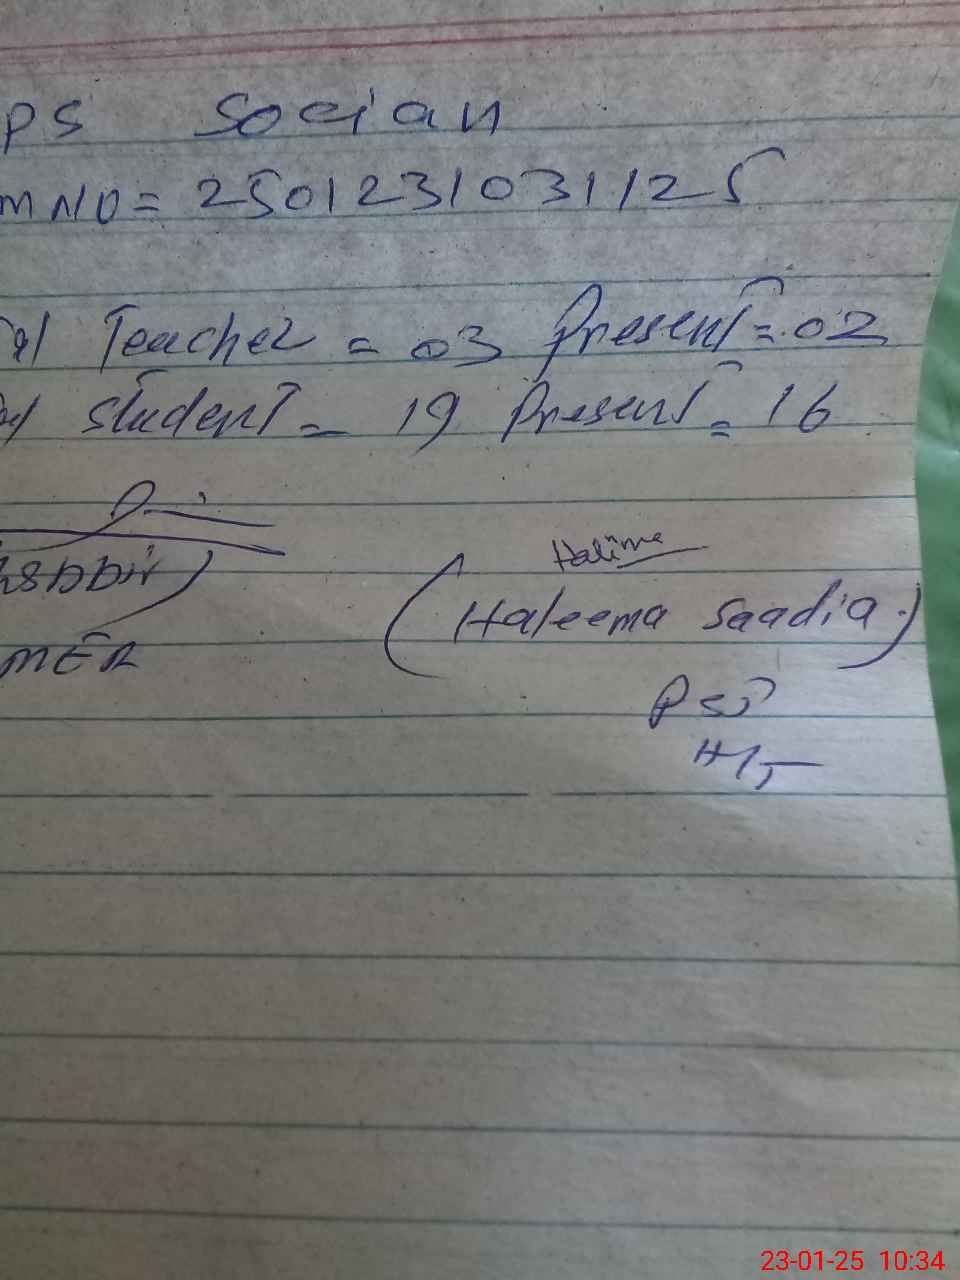 PS Socian
MNO = 2501231031125
al Teacher = 03 Present = 02
al Student = 19 Present = 16
Halima
(Haleema Saadia.)
MER
PST
H/T
23-01-25 10:34